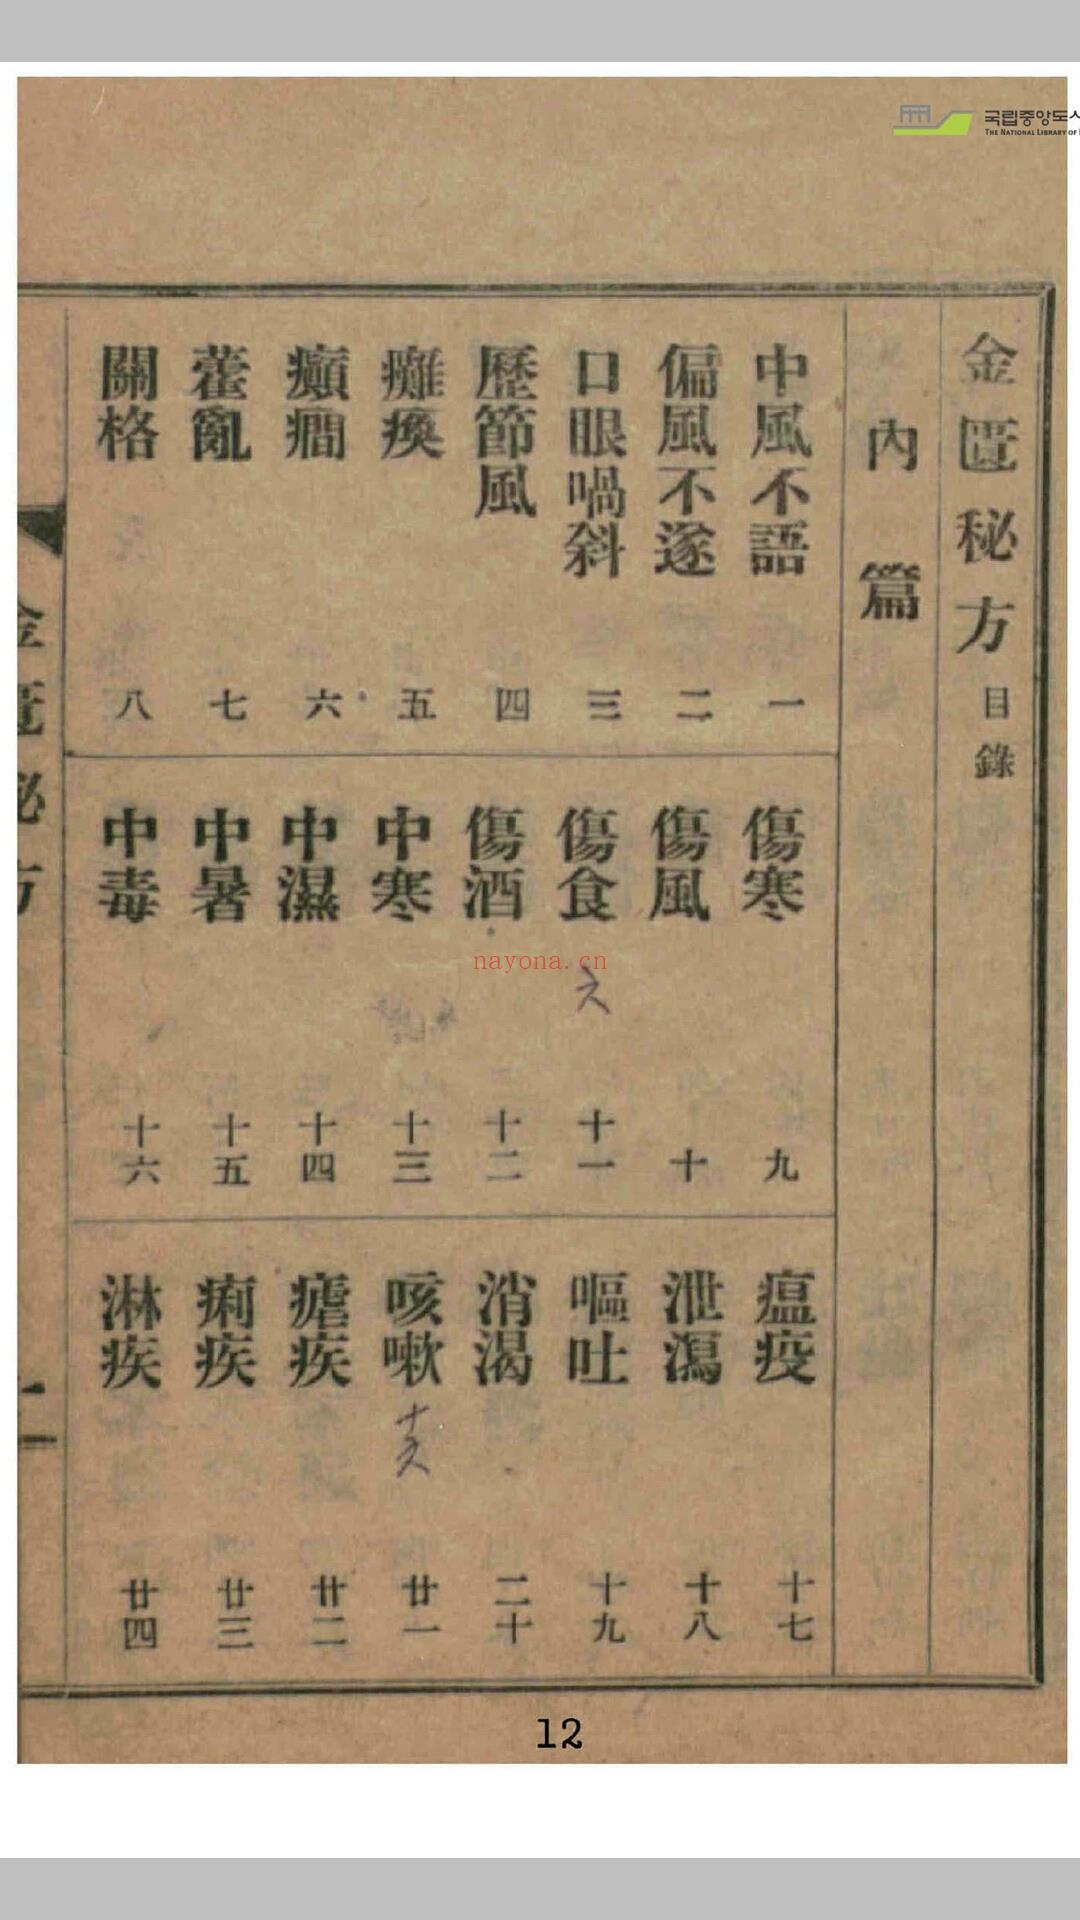 국립중앙도서
THE NATIONAL LIBRARY OF
金匱秘方目錄
內篇
中風不語 一
偏風不遂 二
口眼喎斜 三
歷節風 四
癱瘓 五
癲癇 六
藿亂 七
關格 八
傷寒 九
傷風 十
傷食 十一
傷酒 十二
中寒 十三
中濕 十四
中暑 十五
中毒 十六
瘟疫 十七
泄瀉 十八
嘔吐 十九
消渴 二十
咳嗽 廿一
瘧疾 廿二
痢疾 廿三
淋疾 廿四
金匱秘方
nayona.cn
12